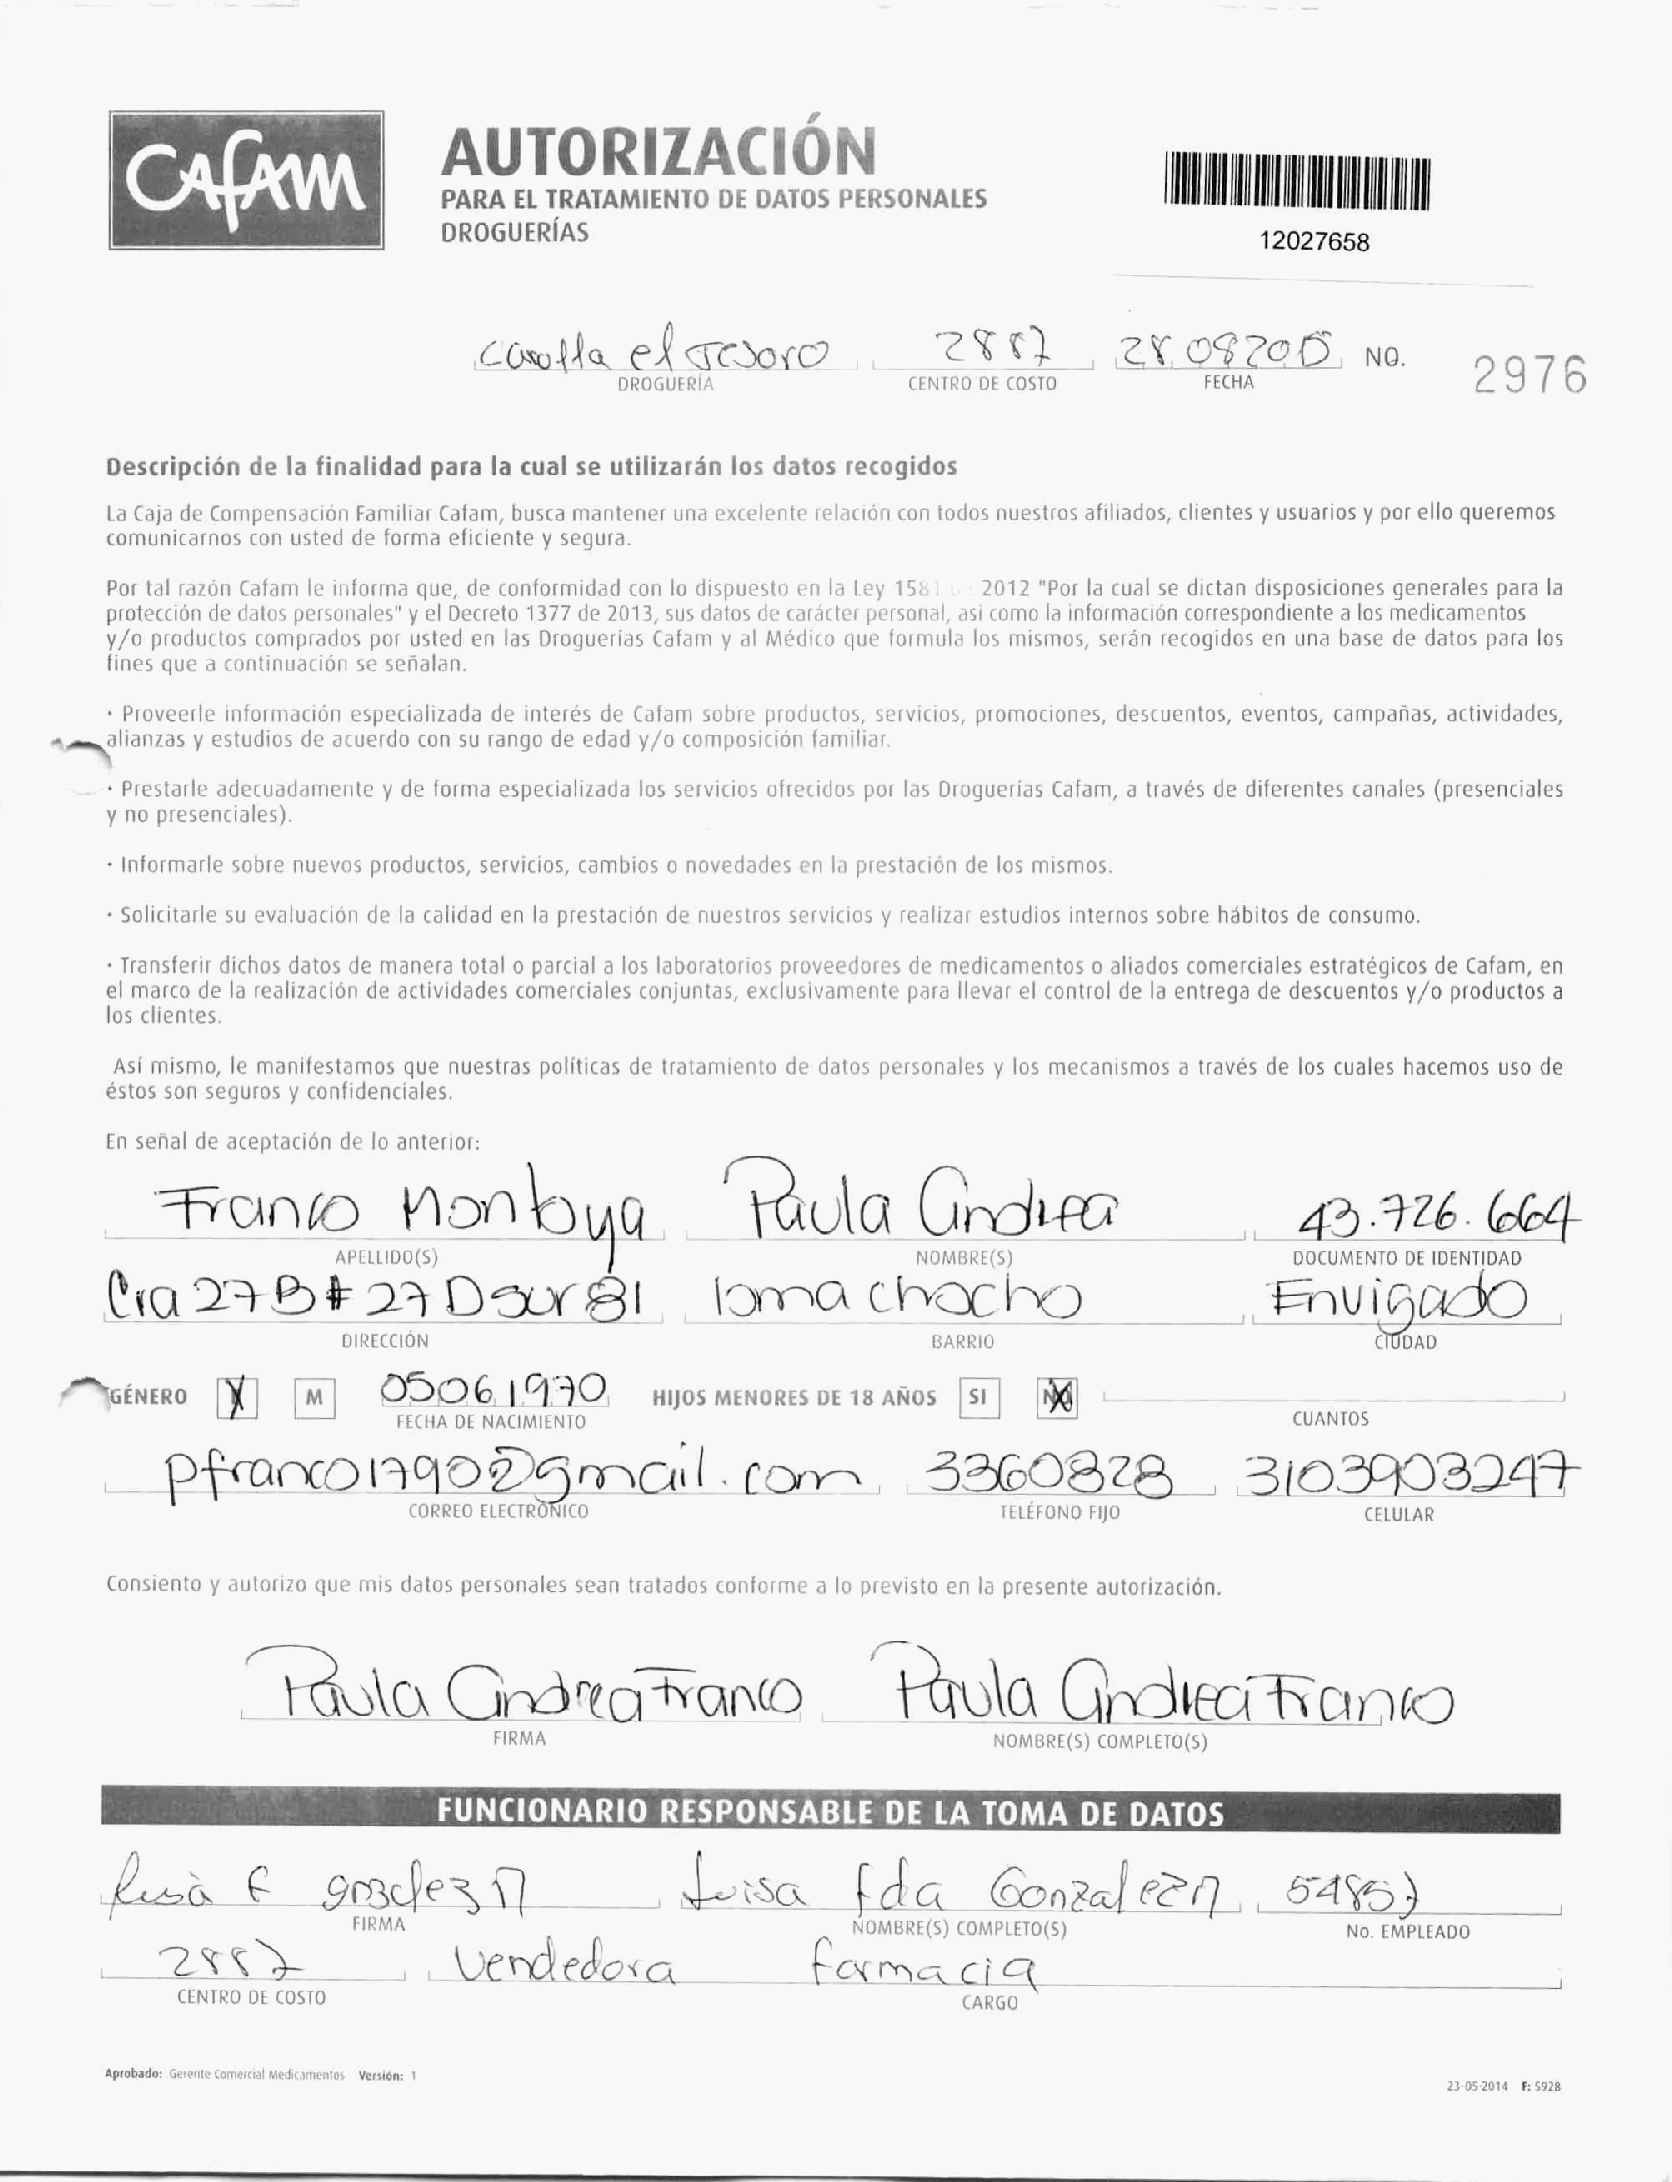 Cafam
AUTORIZACIÓN
PARA EL TRATAMIENTO DE DATOS PERSONALES
DROGUERÍAS
12027658
el Tesoro 2887 NO. 2976
DROGUERÍA CENTRO DE COSTO FECHA
Descripción de la finalidad para la cual se utilizarán los datos recogidos
La Caja de Compensación Familiar Cafam, busca mantener una excelente relación con todos nuestros afiliados, clientes y usuarios y por ello queremos
comunicarnos con usted de forma eficiente y segura.
Por tal razón Cafam le informa que, de conformidad con lo dispuesto en la Ley 1581 2012 "Por la cual se dictan disposiciones generales para la
protección de datos personales" y el Decreto 1377 de 2013, sus datos de carácter personal, asi como la información correspondiente a los medicamentos
y/o productos comprados por usted en las Droguerías Cafam y al Médico que formula los mismos, serán recogidos en una base de datos para los
fines que a continuación se señalan.
· Proveerle información especializada de interés de Cafam sobre productos, servicios, promociones, descuentos, eventos, campañas, actividades,
alianzas y estudios de acuerdo con su rango de edad y/o composición familiar.
· Prestarle adecuadamente y de forma especializada los servicios ofrecidos por las Droguerías Cafam, a través de diferentes canales (presenciales
y no presenciales).
· Informarle sobre nuevos productos, servicios, cambios o novedades en la prestación de los mismos.
· Solicitarle su evaluación de la calidad en la prestación de nuestros servicios y realizar estudios internos sobre hábitos de consumo.
· Transferir dichos datos de manera total o parcial a los laboratorios proveedores de medicamentos o aliados comerciales estratégicos de Cafam, en
el marco de la realización de actividades comerciales conjuntas, exclusivamente para llevar el control de la entrega de descuentos y/o productos a
los clientes.
Así mismo, le manifestamos que nuestras políticas de tratamiento de datos personales y los mecanismos a través de los cuales hacemos uso de
éstos son seguros y confidenciales.
En señal de aceptación de lo anterior:
Franco Montoya Paula Andrea 43.726.664
APELLIDO(S) NOMBRE(S) DOCUMENTO DE IDENTIDAD
Cra 27B # 27 D sur 81 loma chocho Envigado
DIRECCIÓN BARRIO CIUDAD
GÉNERO X M 05061970 HIJOS MENORES DE 18 AÑOS SI NO
FECHA DE NACIMIENTO CUANTOS
pfranco1790@gmail.com 3360828 3103903247
CORREO ELECTRÓNICO TELÉFONO FIJO CELULAR
Consiento y autorizo que mis datos personales sean tratados conforme a lo previsto en la presente autorización.
Paula Andrea Franco Paula Andrea Franco
FIRMA NOMBRE(S) COMPLETO(S)
FUNCIONARIO RESPONSABLE DE LA TOMA DE DATOS
Luisa fda Gonzalez M 54857
FIRMA NOMBRE(S) COMPLETO(S) No. EMPLEADO
2887 Vendedora farmacia
CENTRO DE COSTO CARGO
Aprobado: Gerente Comercial Medicamentos Versión: 1
23-05-2014 F: 5928